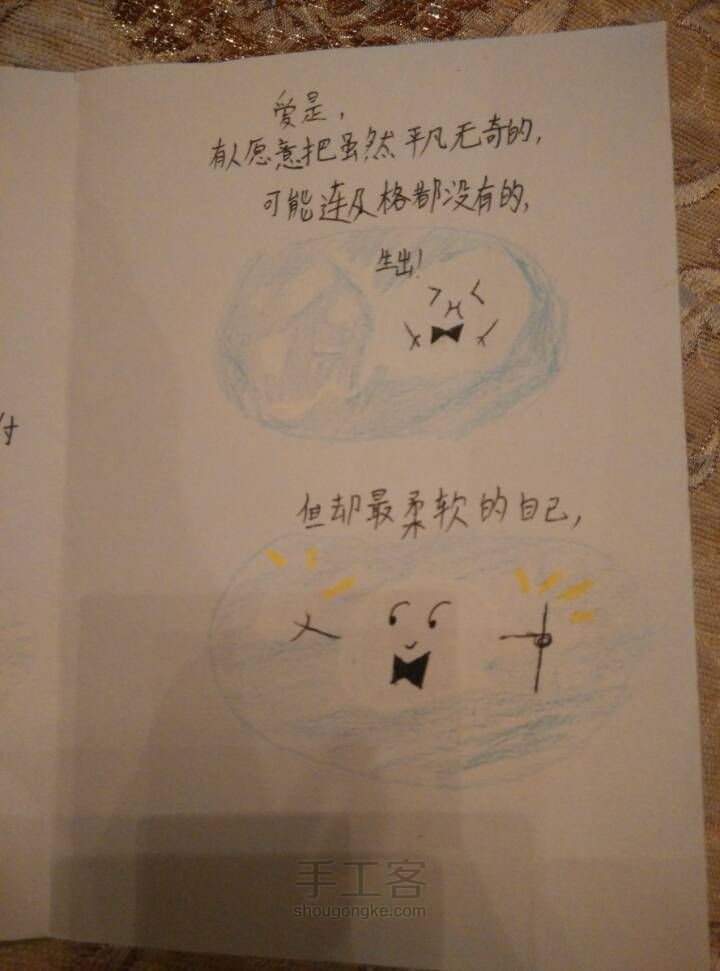 爱是，
有人愿意把虽然平凡无奇的，
可能连及格都没有的，
生出！
但却最柔软的自己，
付
手工客
shougongke.com